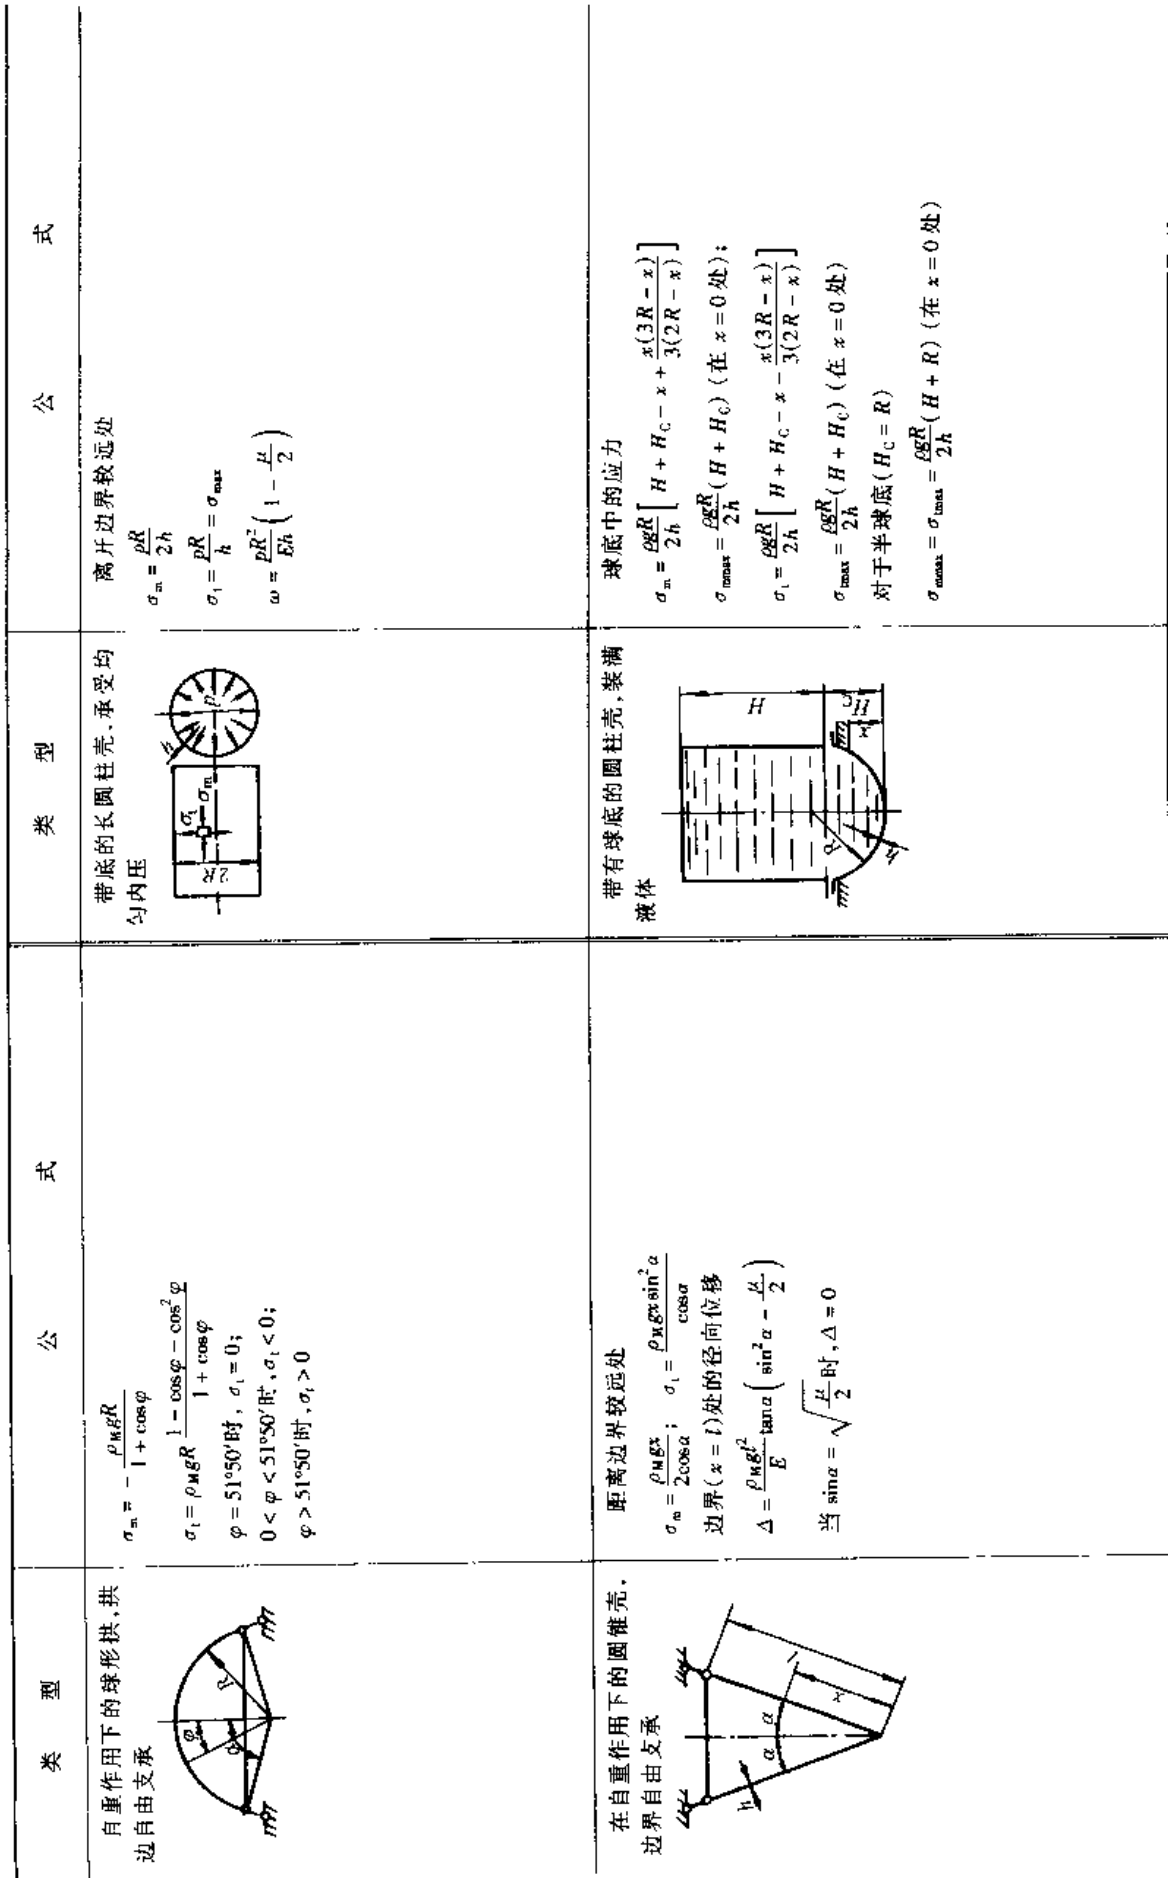 类 型 公 式 类 型 公 式
自重作用下的球形拱,拱
边自由支承
φ
R
σₘ = - ρ_M gR / (1 + cosφ)
σₜ = ρ_M gR (1 - cosφ - cos²φ) / (1 + cosφ)
φ = 51°50′时, σₜ = 0;
0 < φ < 51°50′时, σₜ < 0;
φ > 51°50′时, σₜ > 0
带底的长圆柱壳,承受均
匀内压
2R
σₜ
σₘ
h
p
离开边界较远处
σₘ = pR / 2h
σₜ = pR / h = σ_max
ω = pR² / Eh (1 - μ / 2)
在自重作用下的圆锥壳,
边界自由支承
h
α α
x
l
距离边界较远处
σₘ = ρ_M gx / 2cosα ; σₜ = ρ_M gx sin²α / cosα
边界(x = l)处的径向位移
Δ = ρ_M gl² / E tanα (sin²α - μ / 2)
当 sinα = √(μ / 2) 时, Δ = 0
带有球底的圆柱壳,装满
液体
H
H_C
x
R
h
球底中的应力
σₘ = ρgR / 2h [H + H_C - x + x(3R - x) / 3(2R - x)]
σ_mmax = ρgR / 2h (H + H_C) (在 x = 0 处);
σₜ = ρgR / 2h [H + H_C - x - x(3R - x) / 3(2R - x)]
σ_tmax = ρgR / 2h (H + H_C) (在 x = 0 处)
对于半球底(H_C = R)
σ_mmax = σ_tmax = ρgR / 2h (H + R) (在 x = 0 处)